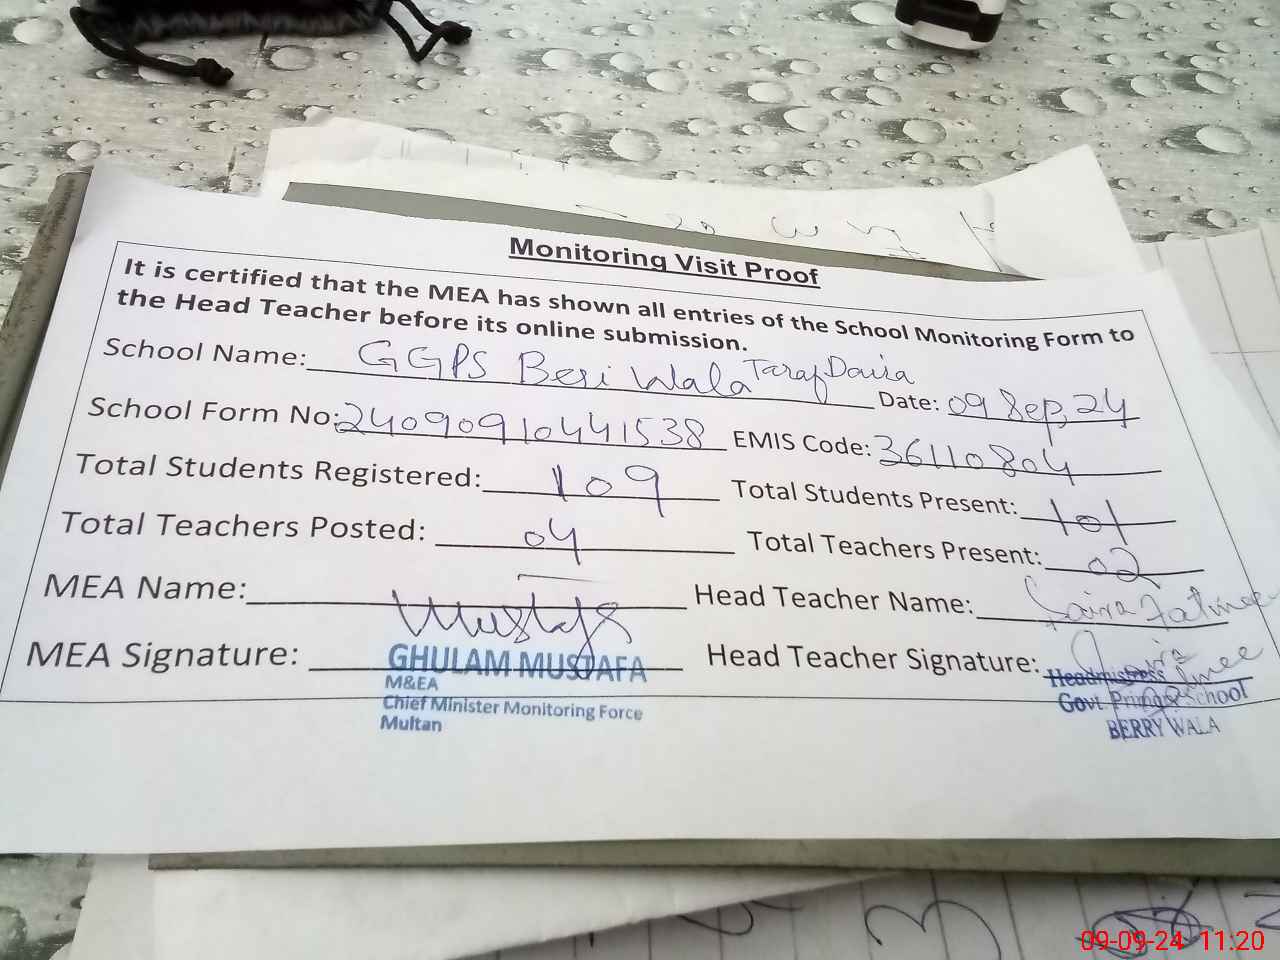 Monitoring Visit Proof
It is certified that the MEA has shown all entries of the School Monitoring Form to
the Head Teacher before its online submission.
School Name: GGPS Beri Wala Taraf Daira Date: 09 Sep, 24
School Form No: 24090910441538 EMIS Code: 36110804
Total Students Registered: 109 Total Students Present: 101
Total Teachers Posted: 04 Total Teachers Present: 02
MEA Name: Mustafa Head Teacher Name: Saira Fatimee
MEA Signature: Head Teacher Signature:
GHULAM MUSTAFA
M&EA
Chief Minister Monitoring Force
Multan
Headmistress
Govt. Primary School
BERRY WALA
09-09-24 11:20